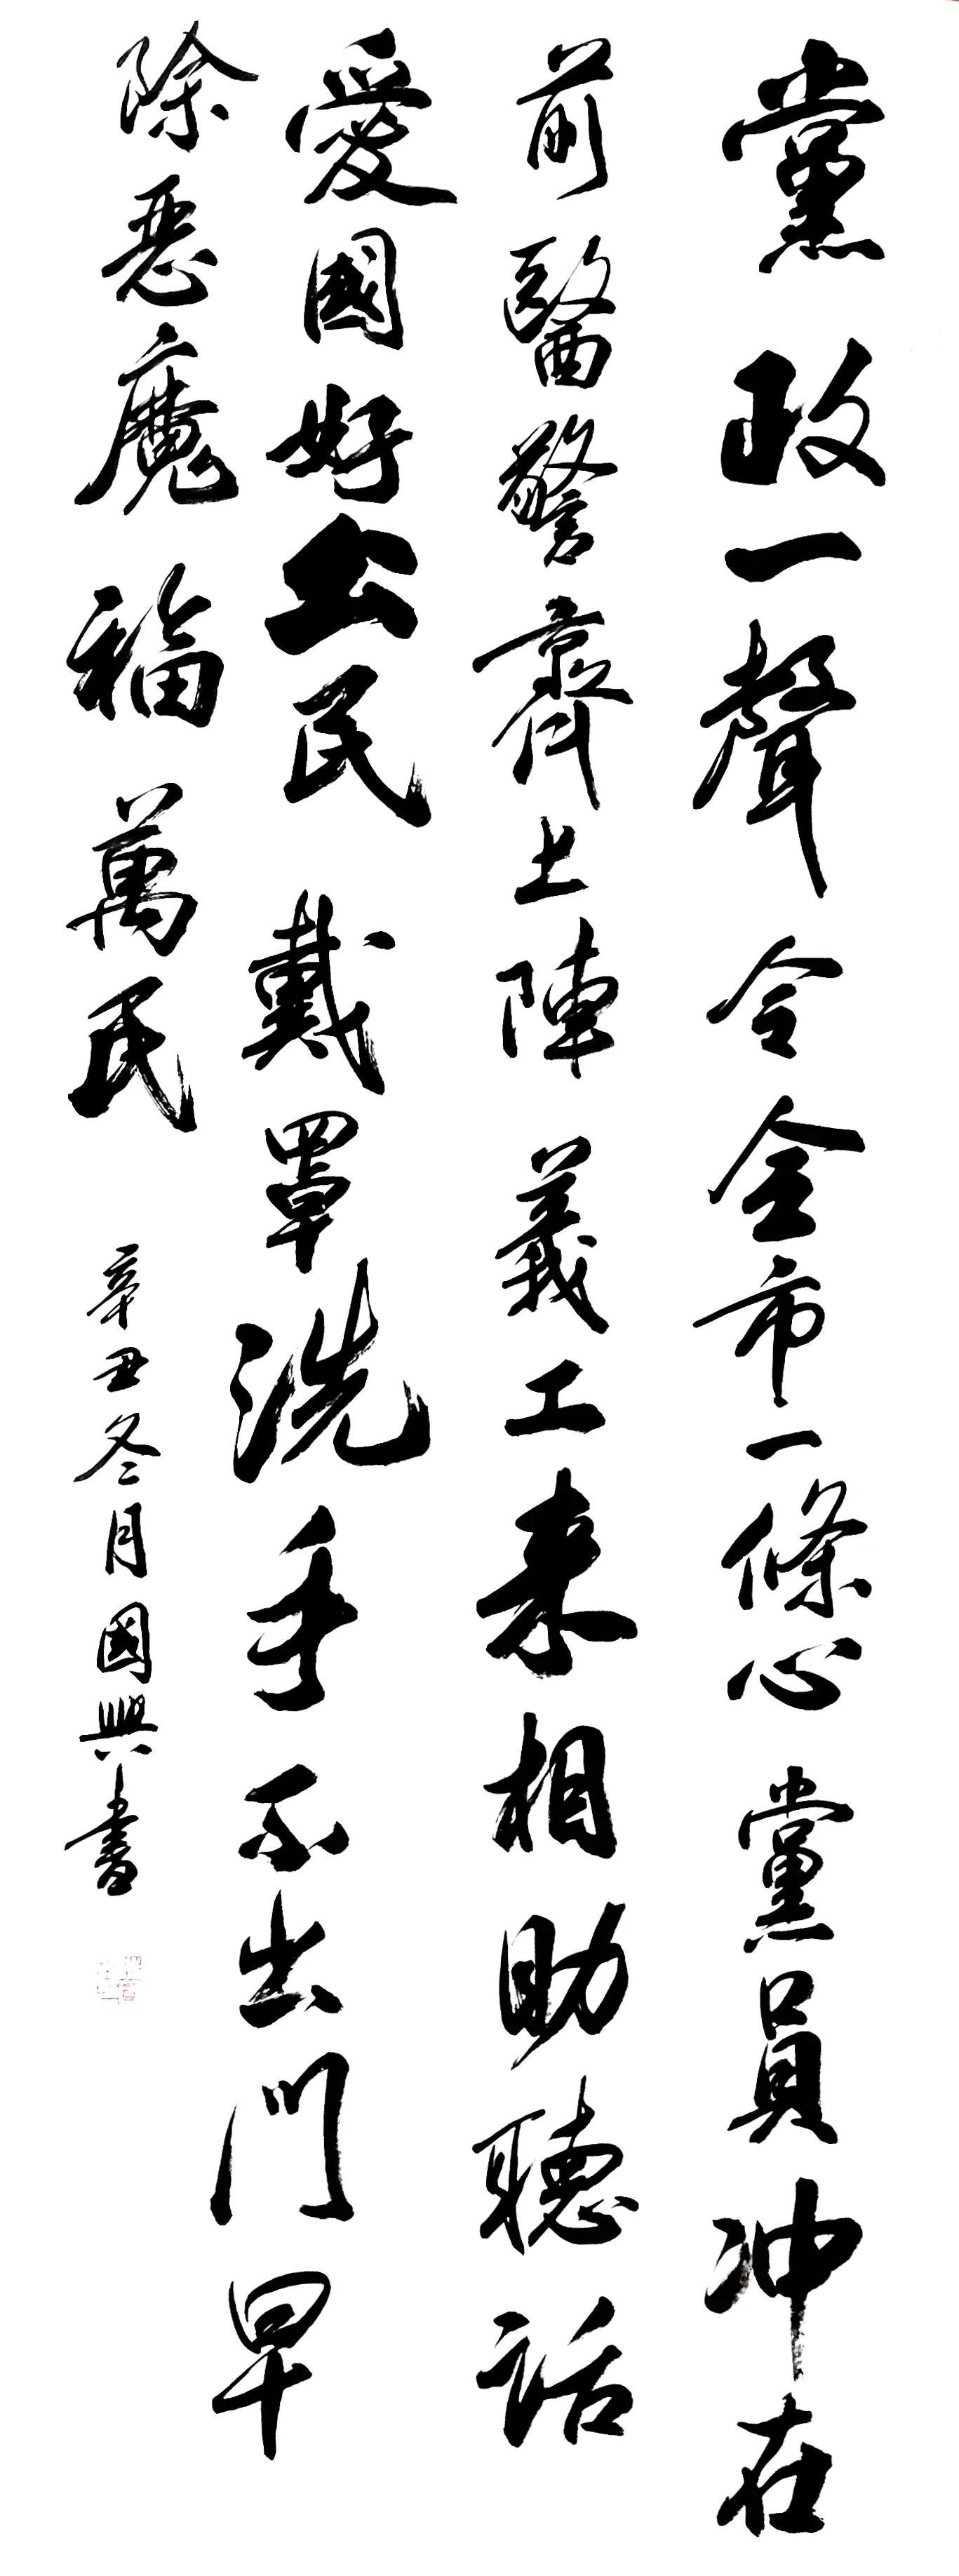 黨政一聲令全市一條心黨員冲在
前醫警齊上陣義工来相助聽話
愛國好公民戴罩洗手不出門早
除惡魔福萬民
辛丑冬月國興書